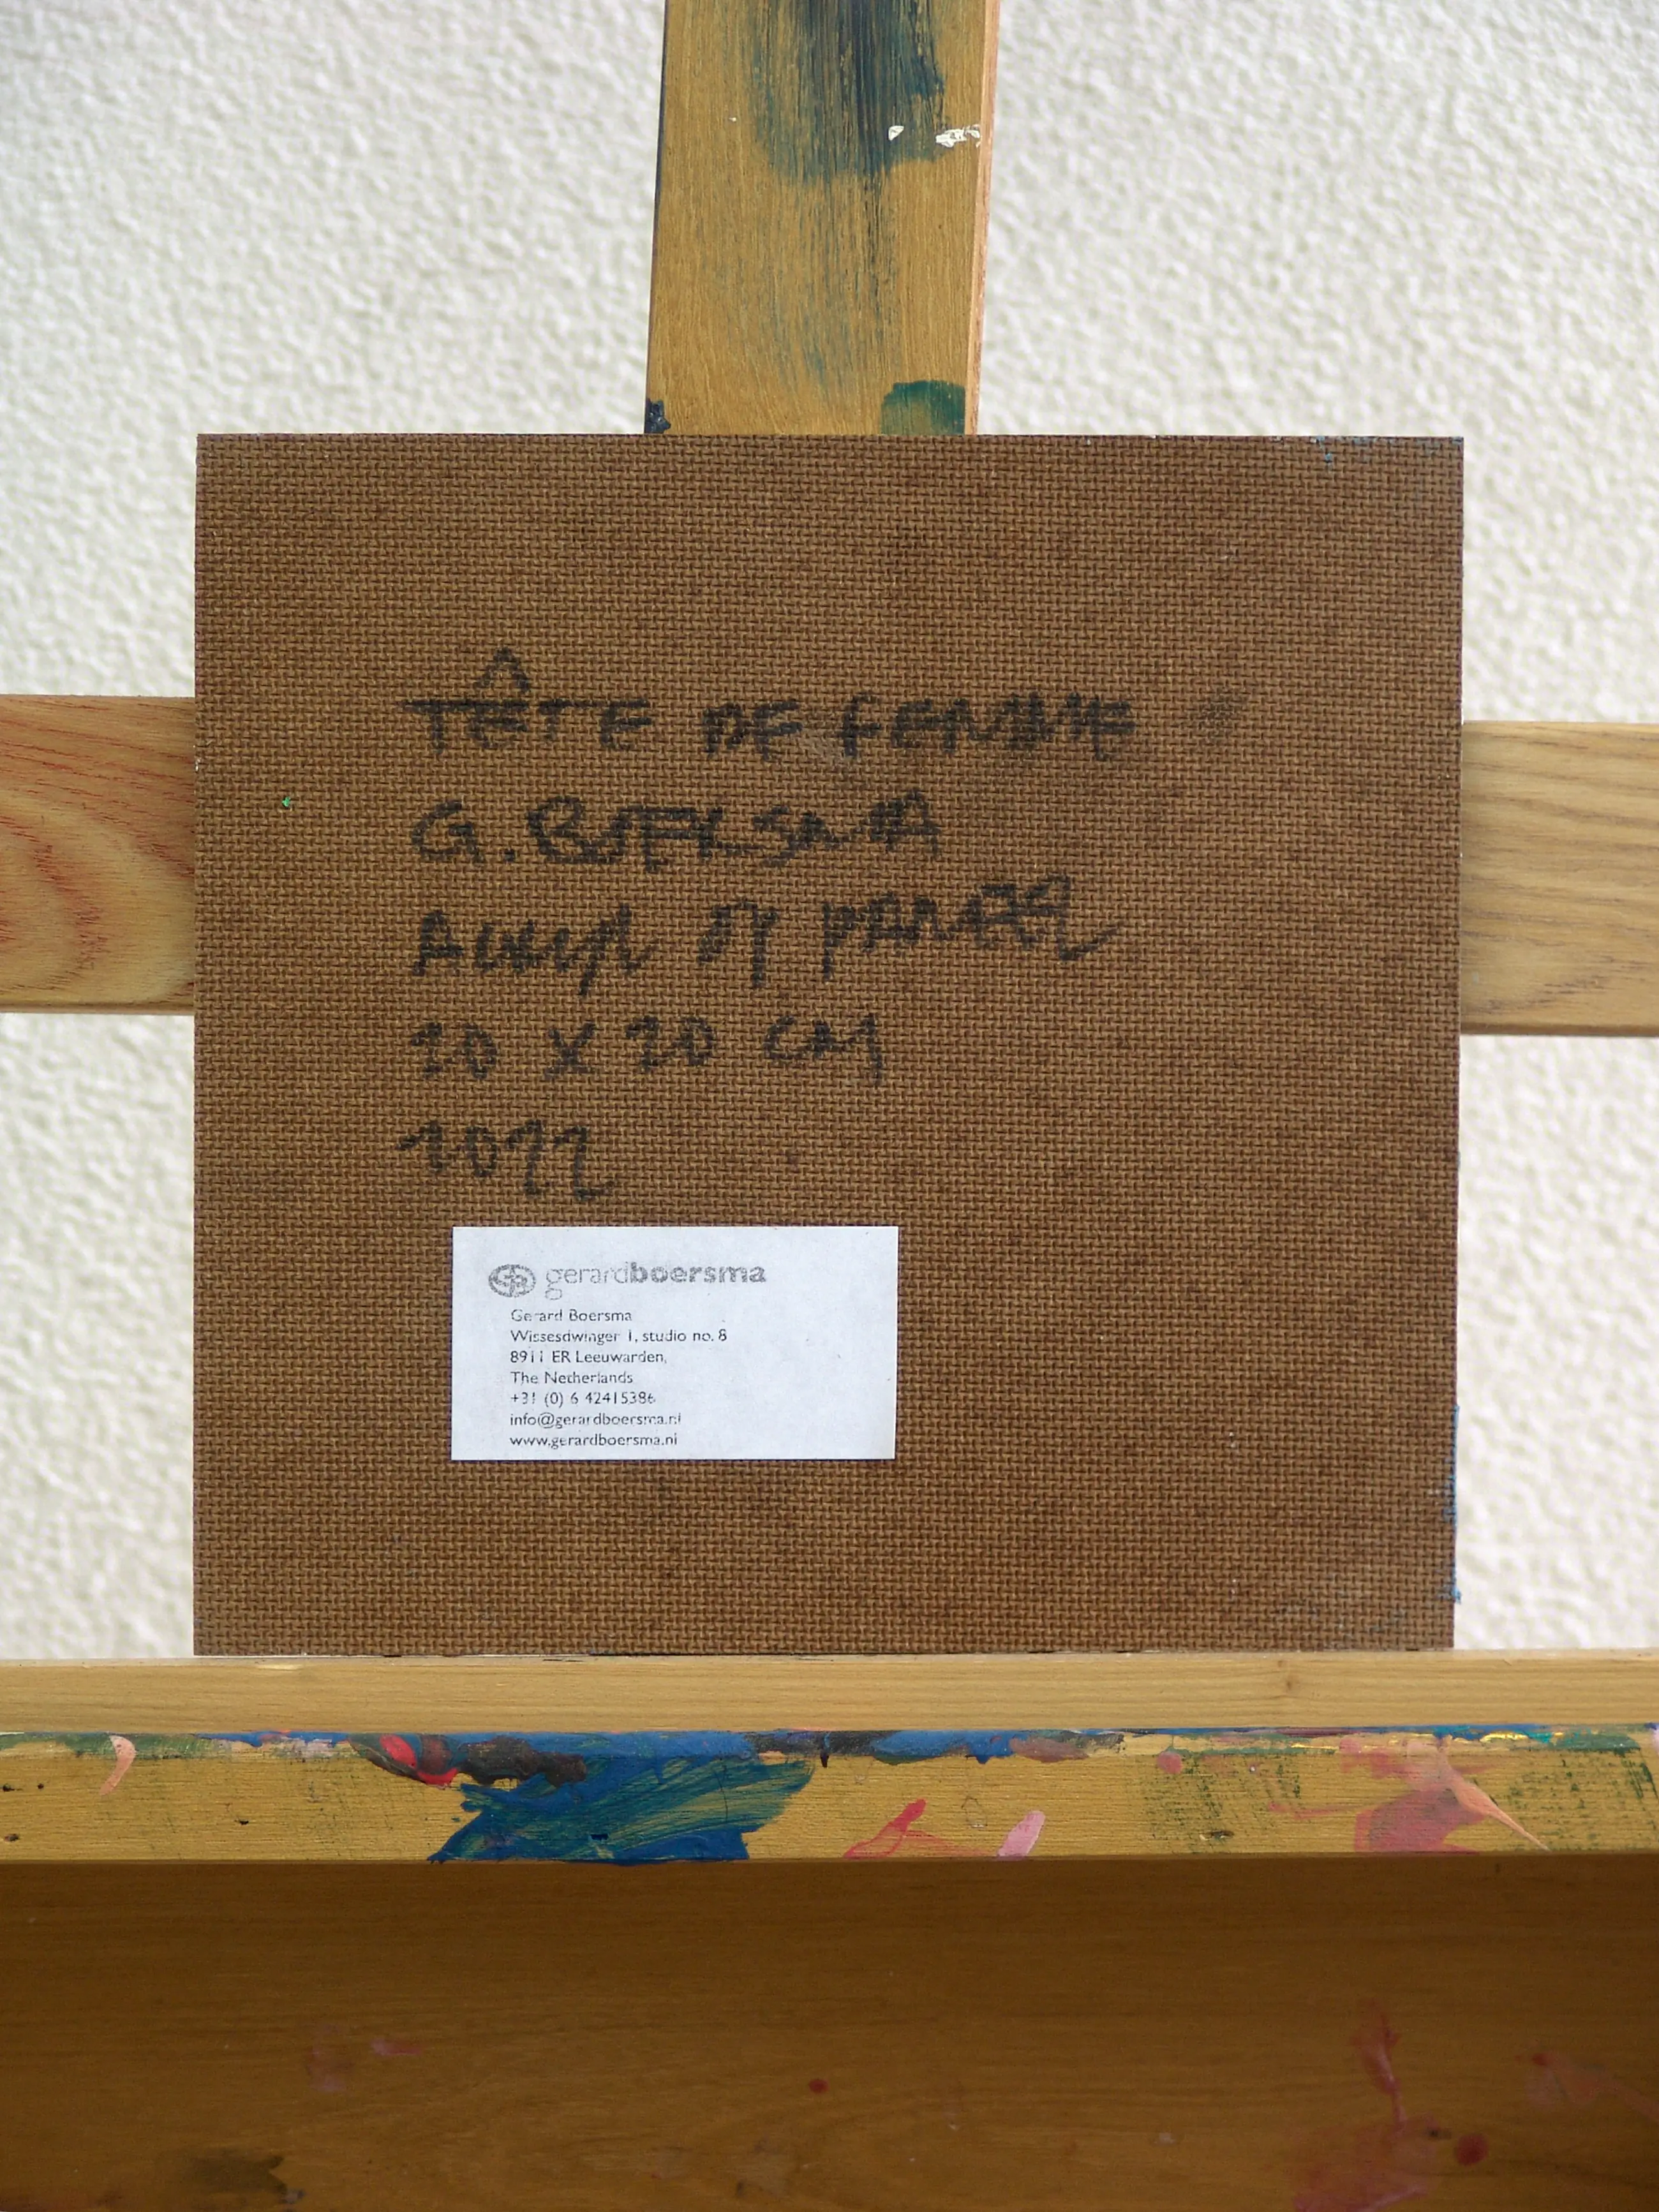 TÊTE DE FEMME
G. BOERSMA
ACRYL OP PANEEL
20 X 20 CM
2022
gerardboersma
Gerard Boersma
Wissesdwinger 1, studio no. 8
8911 ER Leeuwarden,
The Netherlands
+31 (0) 6 42415386
info@gerardboersma.nl
www.gerardboersma.nl